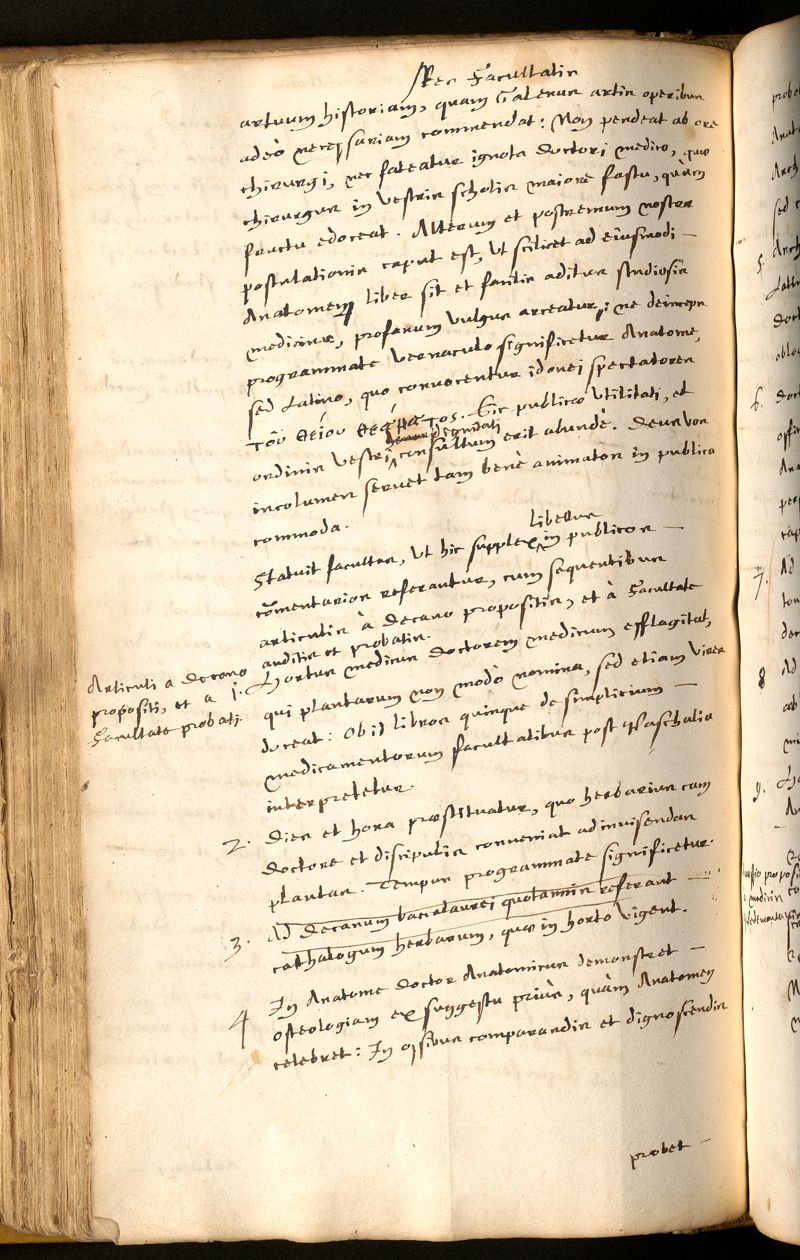 Res Facultatis
artuum historiam, quam Galenus artis operibus
adeò necessariam commendat: Non pendeat ab ore
chirurgi, nec fateatur ignota doctori medico, quæ
chirurgus in vestris scholis maiore fastu, quàm
fructu edoceat. Alterum et postremum nostræ
postulationis caput est, ut scilicet ad eiusmodi
Anatomem liber sit et facilis aditus studiosis
medicinæ, profanum vulgus arceatur, ne deinceps
programmate vernaculo significetur Anatome,
sed Latino, quo convocentur idonei spectatores
τοῦ θείου θεάματος. Sic publicæ utilitati, et
dignitati
ordinis vestri consultum erit abundè. Deus vos
incolumes servet tam benè animatos in publica
commoda.
libellus
Statuit facultas, ut hic supplex in publicos
comentarios referantur, cum sequentibus
articulis à decano propositis, et à Facultate
auditis et probatis.
Articuli a decano
propositi, et a
Facultate probati
1. Hortus medicus doctorem medicum efflagitat,
qui plantarum non modò nomina, sed etiam vires
doceat: ob id libros quinque de simplicium
medicamentorum facultatibus post Paschalia
interpretetur.
2. Dies et hora præstituatur, quo herbarius cum
doctore et discipulis conveniat ad invisendas
plantas. Tempus programmate significetur.
3. Ad Decanum bacalaurei quotannis referant
cathalogum herbarum, quæ in horto vigent.
4 In Anatome doctor Anatomicus demonstret
osteologiam ex suggestu priùs, quàm Anatomen
celebret: In ossibus comparandis et dignoscendis
probet